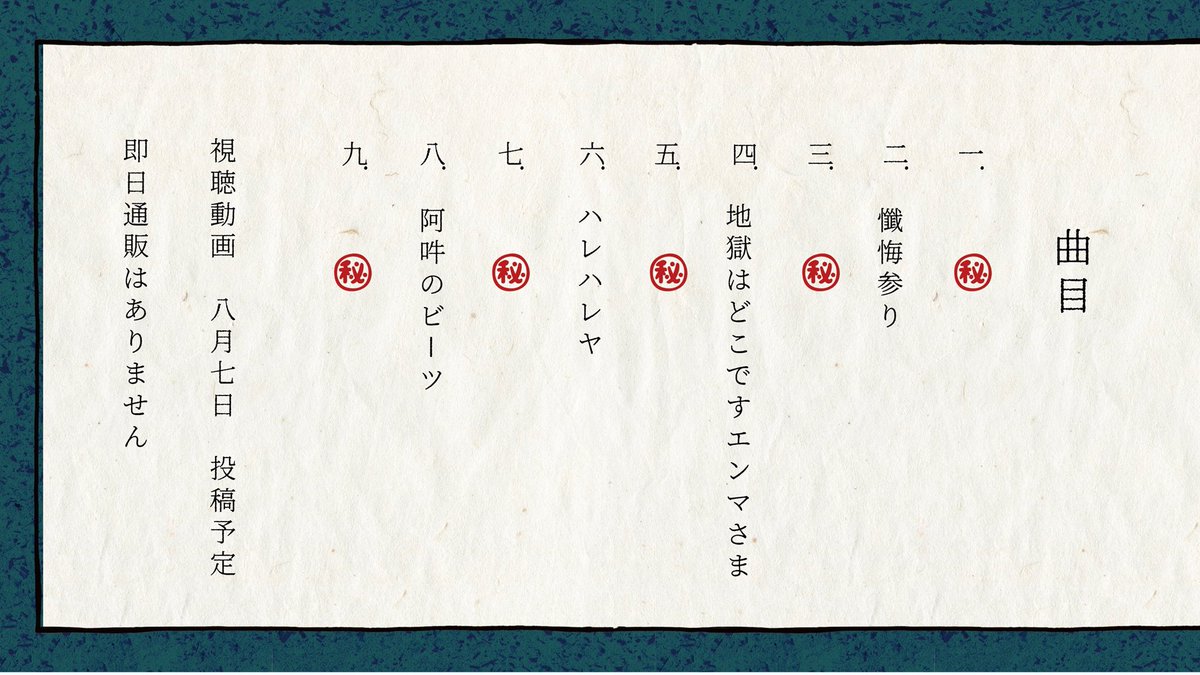 曲目
一. ㊙
二. 懺悔参り
三. ㊙
四. 地獄はどこですエンマさま
五. ㊙
六. ハレハレヤ
七. ㊙
八. 阿吽のビーツ
九. ㊙
視聴動画 八月七日 投稿予定
即日通販はありません